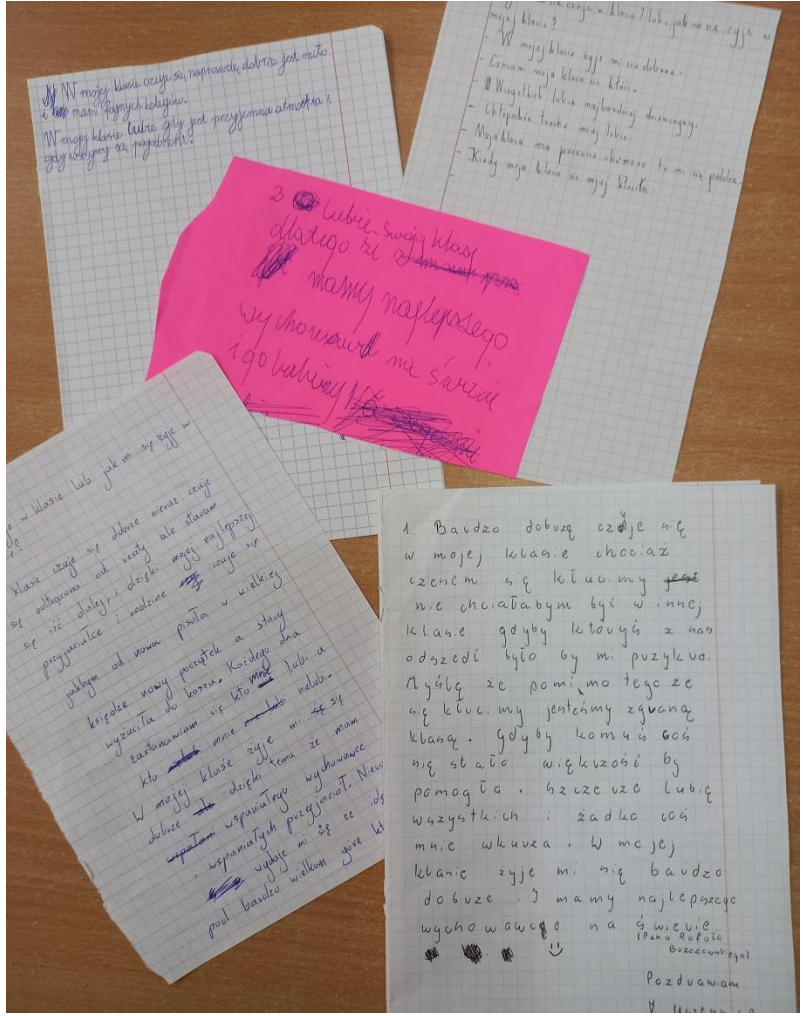 W mojej klasie czuje się naprawdę dobrze jest miło
i mam fajnych kolegów.
W mojej klasie lubie gdy jest przyjemna atmosfera i
gdy wszyscy są pogodzeni.
się czuje w klasie? lub jak mi się żyje w
mojej klasie?
- W mojej klasie żyje mi sie dobrze.
- Czasami moja klasa się kłóci.
- Wszystkich lubie najbardziej dziewczyny.
- Chłopaków trochę mniej lubie.
- Moja klasa ma poczucie humoru to mi się podoba.
- Kiedy moja klasa się
2 Lubie swoją klasę
dlatego że
mamy najlepszego
wychowawce na świecie
i go lubimy
w klasie lub jak mi się żyje w
klasie czuje się dobrze nieraz czuje
się odtrącona od reszty ale staram
się iść dalej, i dzięki mojej najlepszej
przyjaciółce i rodzine czuje się
jakbym od nowa pisała w wielkiej
księdze nowy początek a stary
wyrzuciła do kosza. Każdego dnia
zastanawiam się kto mnie lubi a
kto mnie nielubi.
W mojej klasie żyje mi się
dobrze dzięki temu że mam
wspaniałego wychowawce
i wspaniałych przyjaciół.
wydaje mi się że idę
pod bardzo wielkom góre
1. Bardzo dobrzę czuje się
w mojej klasie chociaż
czasem się kłucimy jest
nie chciałabym być w innej
klasie gdyby któryś z nas
odszedł było by mi przykro.
Myślę że pomimo tego że
się kłucimy jesteśmy zgraną
klasą. gdyby komuś coś
się stało większość by
pomogła. Szczeże lubię
wszystkich i żadko coś
mnie wkurza. W mojej
klasie żyje mi się bardzo
dobrze. I mamy najlepszego
wychowawcę na świecie
(Pana Rafała
Brzozowskiego)
Pozdrawiam